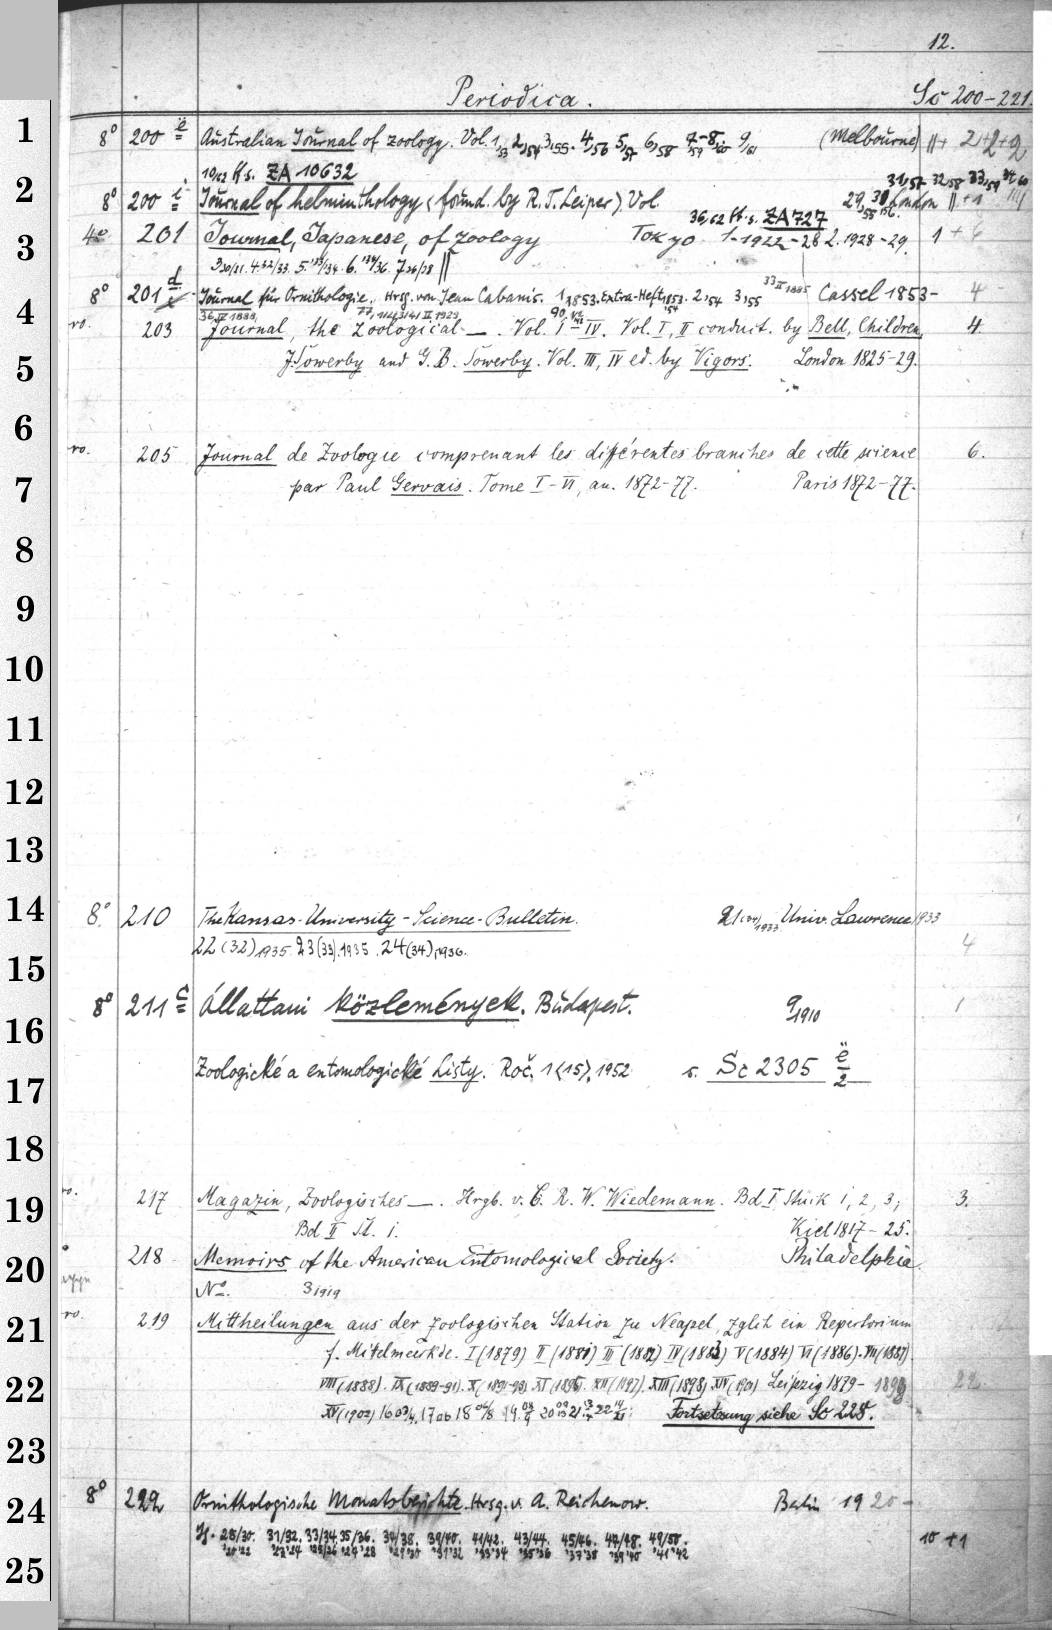 12.
Periodica. Sc 200-221.
1
8° 200 ë Australian Journal of zoology. Vol. 1,53 2,54 3,55. 4,56 5,57 6,58 7-8,59 60 9,61 (Melbourne) ||+ 2+2+2
10,62 ff. s. ZA 10632
2
31,57 32,58 33,59 34,60
8° 200 i Journal of helminthology (found. by R. T. Leiper). Vol 29,55 30,56. London || +1
36,62 ff. s. ZA 727
3
4° 201 Journal, Japanese, of zoology Tokyo 1-1922-28 2. 1928-29. 1 + 6
3 30/31. 4. 32/33. 5. 33/34. 6. 34/36. 7 36/38 ||
4
8° 201 d Journal für Ornithologie. Hrsg. von Jean Cabanis. 1,1853. Extra-Heft, 1853. 2,54 3,55 33 II 1885 Cassel 1853- 4
36, IV 1888,
ro. 203 Journal, the Zoological —. Vol. I-IV. Vol. I, II conduct. by Bell, Children, 4.
5
J. Sowerby and G. B. Sowerby. Vol. III, IV ed. by Vigors. London 1825-29.
6
ro. 205 Journal de Zoologie comprenant les différentes branches de cette science 6.
7
par Paul Gervais. Tome I-VI, an. 1872-77. Paris 1872-77.
8
9
10
11
12
13
14
8° 210 The Kansas-University-Science-Bulletin. 21 1933 Univ. Lawrence 1933
22 (32) 1935 23 (33). 1935. 24 (34), 1936. 4
15
8° 211 c Állattani közlemények. Budapest. 9,1910 1
16
Zoologické a entomologické Listy. Roč. 1 (15), 1952 s. Sc 2305 ë/2
17
18
ro. 217 Magazin, Zoologisches —. Hrgb. v. C. R. W. Wiedemann. Bd I Stück 1, 2, 3; 3.
19
Bd II St. 1. Kiel 1817-25.
20
218 Memoirs of the American Entomological Society. Philadelphia.
No. 3 1919
21
ro. 219 Mittheilungen aus der zoologischen Station zu Neapel, zglch ein Repertorium
f. Mittelmeerkde. I (1879) II (1881) III (1882) IV (1883) V (1884) VI (1886). VII (1887)
22
VIII (1888). IX (1889-91). X (1891-93) XI (1895. XII (1897). XIII (1898) XIV (1901) Leipzig 1879- 1898 22.
XV (1902) 16 03/4. 17 18 19. 20 21 22 Fortsetzung siehe Sc 228.
23
24
8° 222 Ornithologische Monatsberichte. Hrsg. v. A. Reichenow. Berlin 1920-
Jg. 28/30. 31/32. 33/34. 35/36. 37/38. 39/40. 41/42. 43/44. 45/46. 47/48. 49/50. 10 +1
'20 '22 '23 '24 '25/26 '27 '28 '29 '30 '31 '32 '33 '34 '35 '36 '37 '38 '39 '40 '41 '42
25